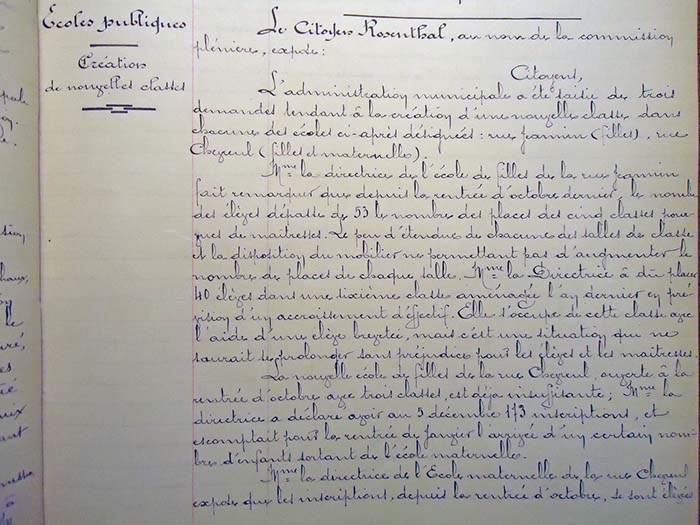 Ecoles publiques
Création
de nouvelles classes
Le Citoyen Rosenthal, au nom de la commission
plénière, expose :
Citoyens,
L'administration municipale a été saisie de trois
demandes tendant à la création d'une nouvelle classe dans
chacune des écoles ci-après désignées : rue Jeannin (filles), rue
Chevreul (filles et maternelle).
Mme la directrice de l'école de filles de la rue Jeannin
fait remarquer que depuis la rentrée d'octobre dernier, le nombre
des élèves dépasse de 53 le nombre des places des cinq classes pour-
vues de maîtresses. Le peu d'étendue de chacune des salles de classe
et la disposition du mobilier ne permettant pas d'augmenter le
nombre de places de chaque salle. Mme la Directrice a dû placer
40 élèves dans une sixième classe aménagée l'an dernier en pré-
vision d'un accroissement d'effectif. Elle s'occupe de cette classe avec
l'aide d'une élève brevetée, mais c'est une situation qui ne
saurait se prolonger sans préjudice pour les élèves et les maîtresses.
La nouvelle école de filles de la rue Chevreul, ouverte à la
rentrée d'octobre avec trois classes, est déjà insuffisante ; Mme la
directrice a déclaré avoir au 5 décembre 173 inscriptions, et
escomptait pour la rentrée de Janvier l'arrivée d'un certain nom-
bre d'enfants sortant de l'école maternelle.
Mme la directrice de l'Ecole maternelle de la rue Chevreul
expose que les inscriptions, depuis la rentrée d'octobre, se sont élevées